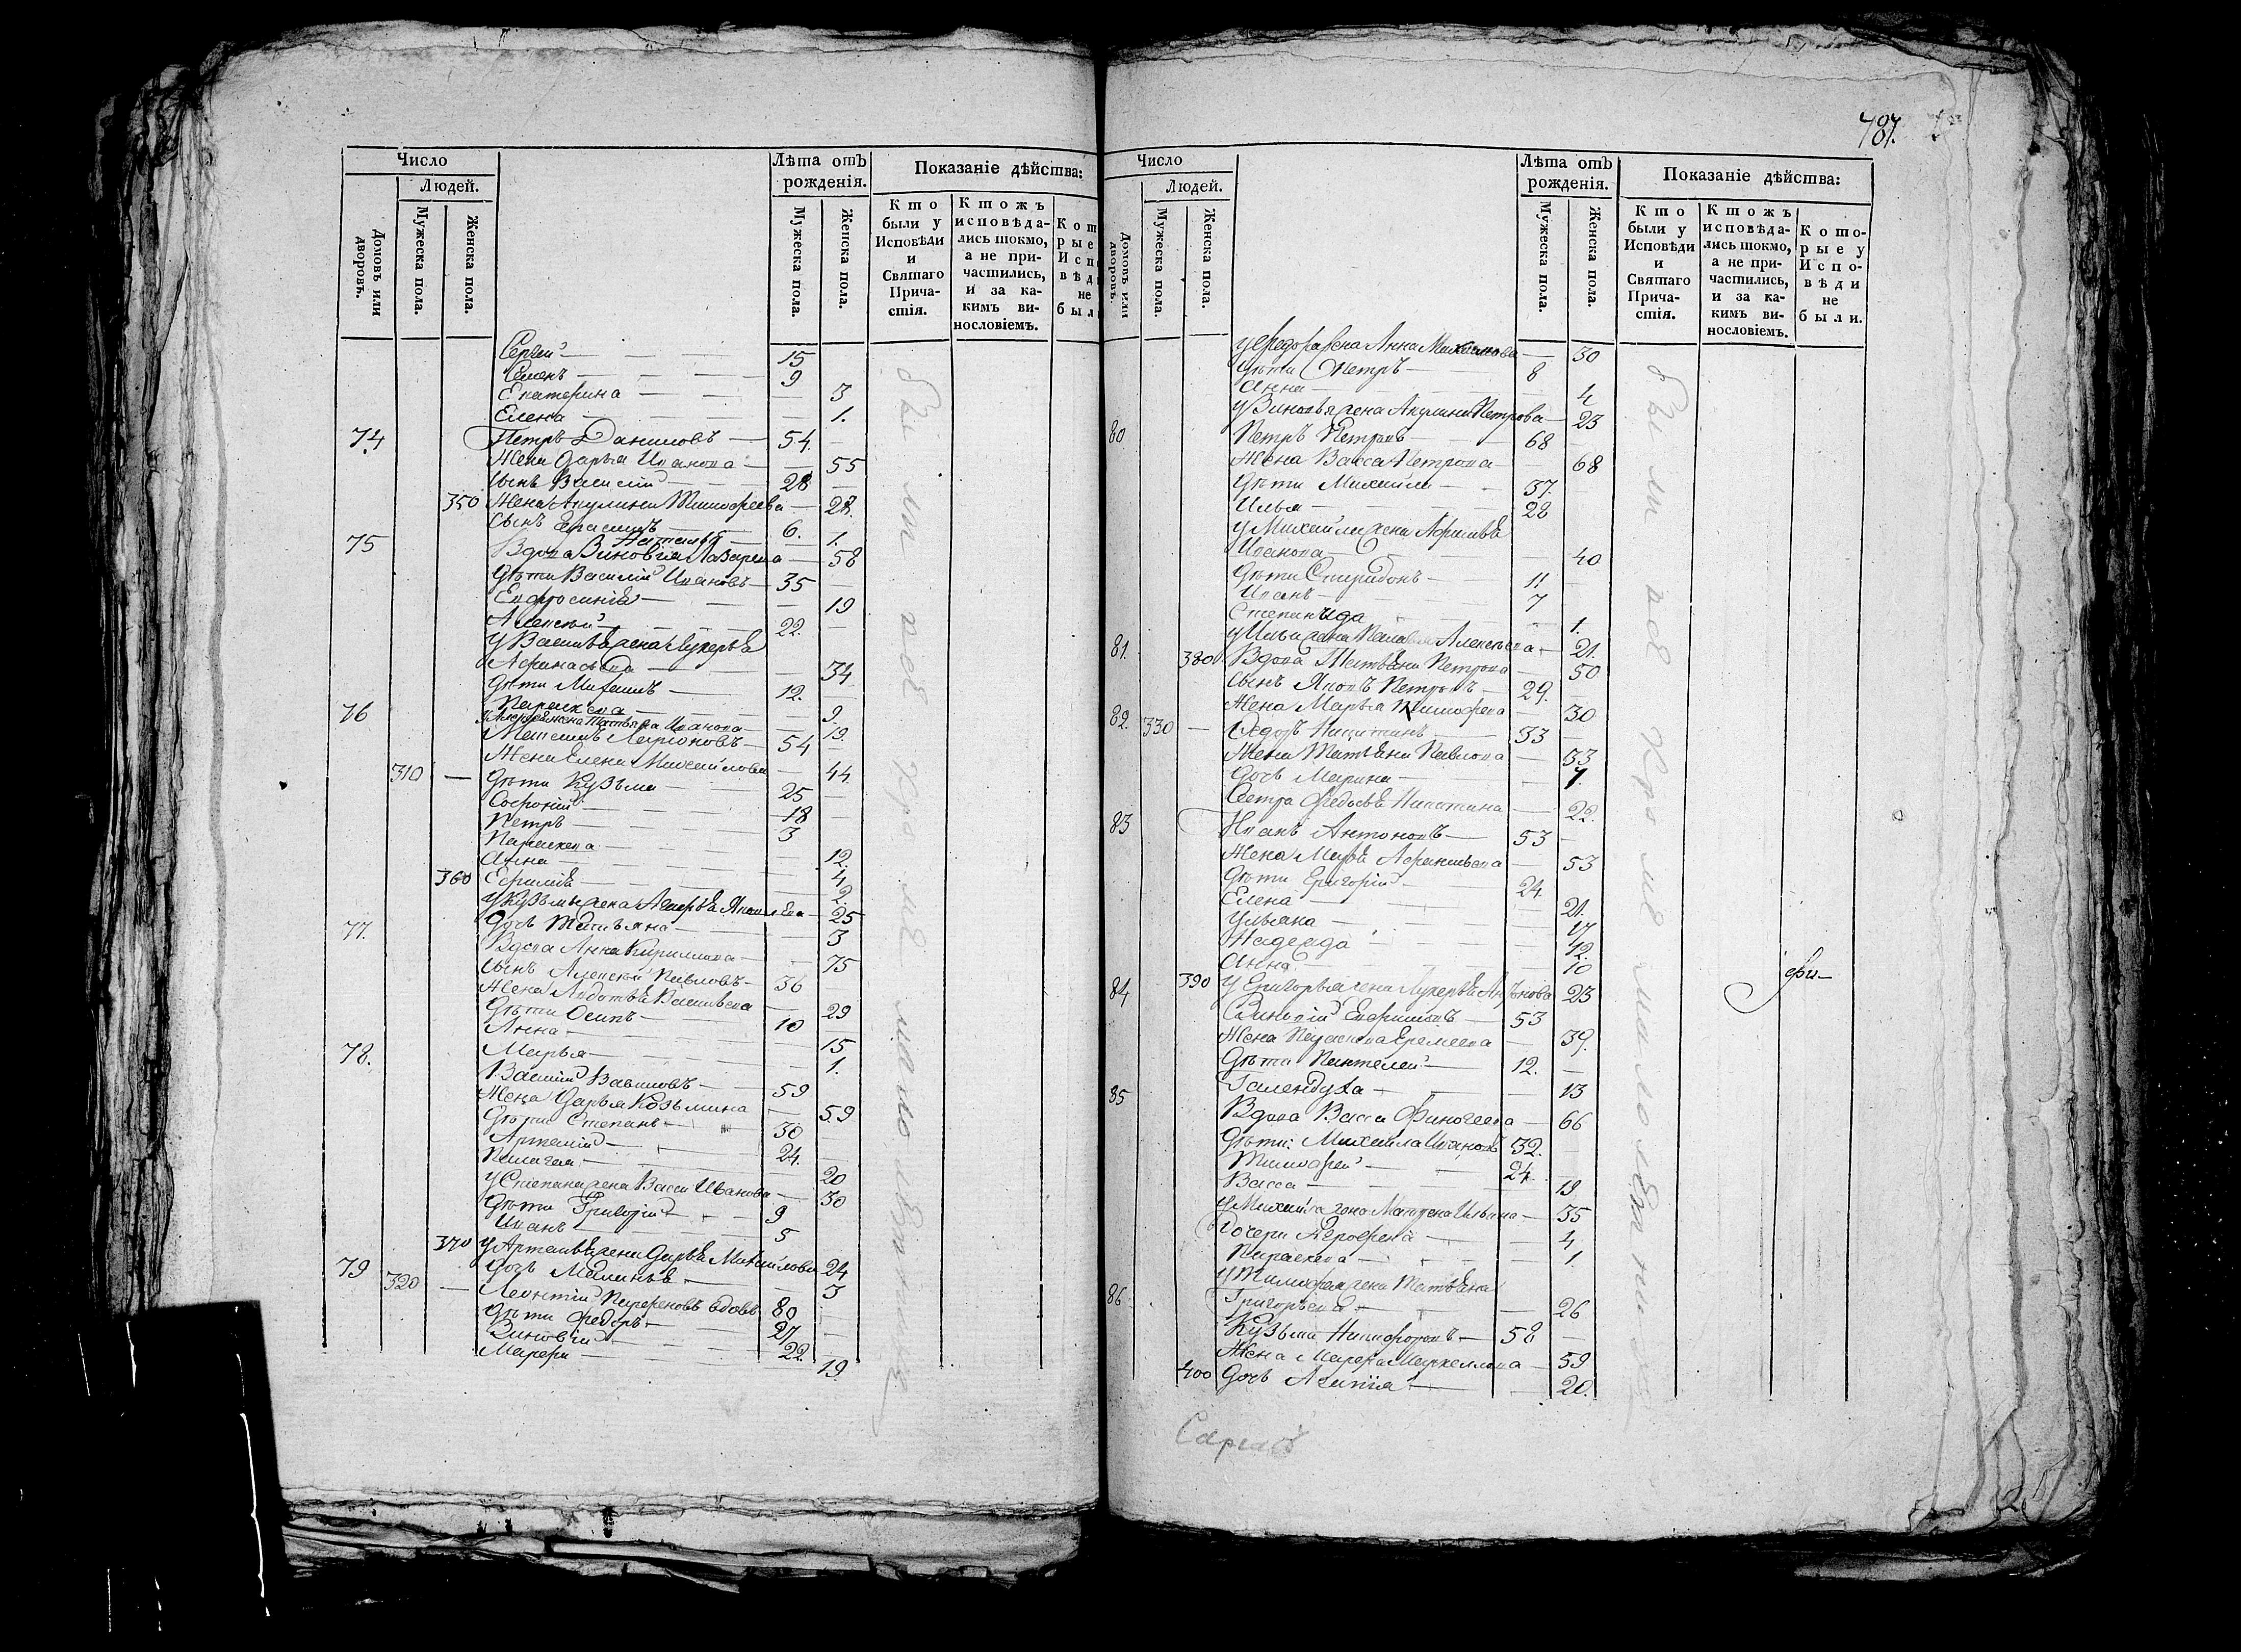 Число
Людей.
Домовъ или дворовъ.
Мужеска пола.
Женска пола.
Лѣта отъ рожденія.
Мужеска пола.
Женска пола.
Показаніе дѣйства:
Кто были у Исповѣди и Святаго Причастія.
Ктожъ исповѣдались токмо, а не причастились, и за какимъ винословіемъ.
Сергей 15
Семенъ 9
Екатерина 3
Елена 1.
74 Петръ Даниловъ 54.
Жена Дарья Иванова 55
Сынъ Василій 28
350 Жена Акулина Тимофеева 28.
Сынъ Герасимъ 6.
Наталья 1.
75 Вдова Зиновія Лазарева 58
Дѣти Василій Ивановъ 35
Евфросинія 19
Алексѣй 22.
У Василья жена Лукерья
Афанасьева 34
Дѣти 12.
Параскева 9.
жена Татьяна Иванова 19.
76 Ларіоновъ 54
Жена Елена Михайлова 44.
310 Дѣти Кузьма 25
Софроній 18
Петръ 3
Параскева 12.
Анна 4.
360 Ефимія 2.
У Кузьмы жена 25
Дочь Татьяна 3
77. Вдова Анна Кирилова 75
Сынъ Алексѣй Павловъ 36
Жена Васильева 29
Дѣти Осипъ 10
Анна 15
Марья 1.
78. Василій Вавиловъ 59
Жена Дарья Козьмина 59
Дѣти Степанъ 30
Артемій 24.
Пелагея 20
У Степана жена Васса Иванова 30
Дѣти Григорій 9
Иванъ 5
370 У Артемья жена Дарья Михайлова 24
Дочь 3
79 320 Леонтій вдовъ 80
Дѣти Федоръ 27
Зиновій 22.
Марфа 19.
Были всѣ кромѣ малолѣтнихъ
787.
Число
Людей.
Домовъ или дворовъ.
Мужеска пола.
Женска пола.
Лѣта отъ рожденія.
Мужеска пола.
Женска пола.
Показаніе дѣйства:
Кто были у Исповѣди и Святаго Причастія.
Ктожъ исповѣдались токмо, а не причастились, и за какимъ винословіемъ.
Которые у Исповѣди не были.
У Федора жена Анна Михайлова 30
Дѣти Петръ 8
Анна 4
У Зиновья жена Акулина Петрова 23
80 Петръ Петровъ 68
Жена Васса Петрова 68
Дѣти Михаилъ 37.
Илья 28
У Михайла жена
Иванова 40
Дѣти Спиридонъ 11
Иванъ 7
Степанида 1.
У Ильи жена Алексѣева 21.
81. 380 Вдова Татьяна Петрова 50
Сынъ Яковъ Петровъ 29.
Жена Марья Тимофеева 30
82. 330 Федоръ Никитинъ 33
Жена Татьяна Павлова 33
Дочь Марина 7.
Сестра Федосья Никитина 22.
83 Иванъ Антоновъ 53
Жена Марья Афанасьева 53
Дѣти Григорій 24.
Елена 21.
Ульяна 17
Надежда 12.
Анна 10
390 У Григорья жена Лукерья 23
84 Зиновій 53
Жена Параскева Еремеева 39.
Дѣти Пантелей 12.
13
85 Вдова Васса Финогеева 66
Дѣти: Михайла Ивановъ 32.
Тимофей 24.
Васса 19
У Михайла жона Матрена Ильина 35
Дочери 4
Параскева 1.
У Тимофея жена Татьяна
Григорьева 26
86 Кузьма Никифоровъ 58
Жена Марфа 59
400 Дочь 20.
Были всѣ кромѣ малолѣтнихъ